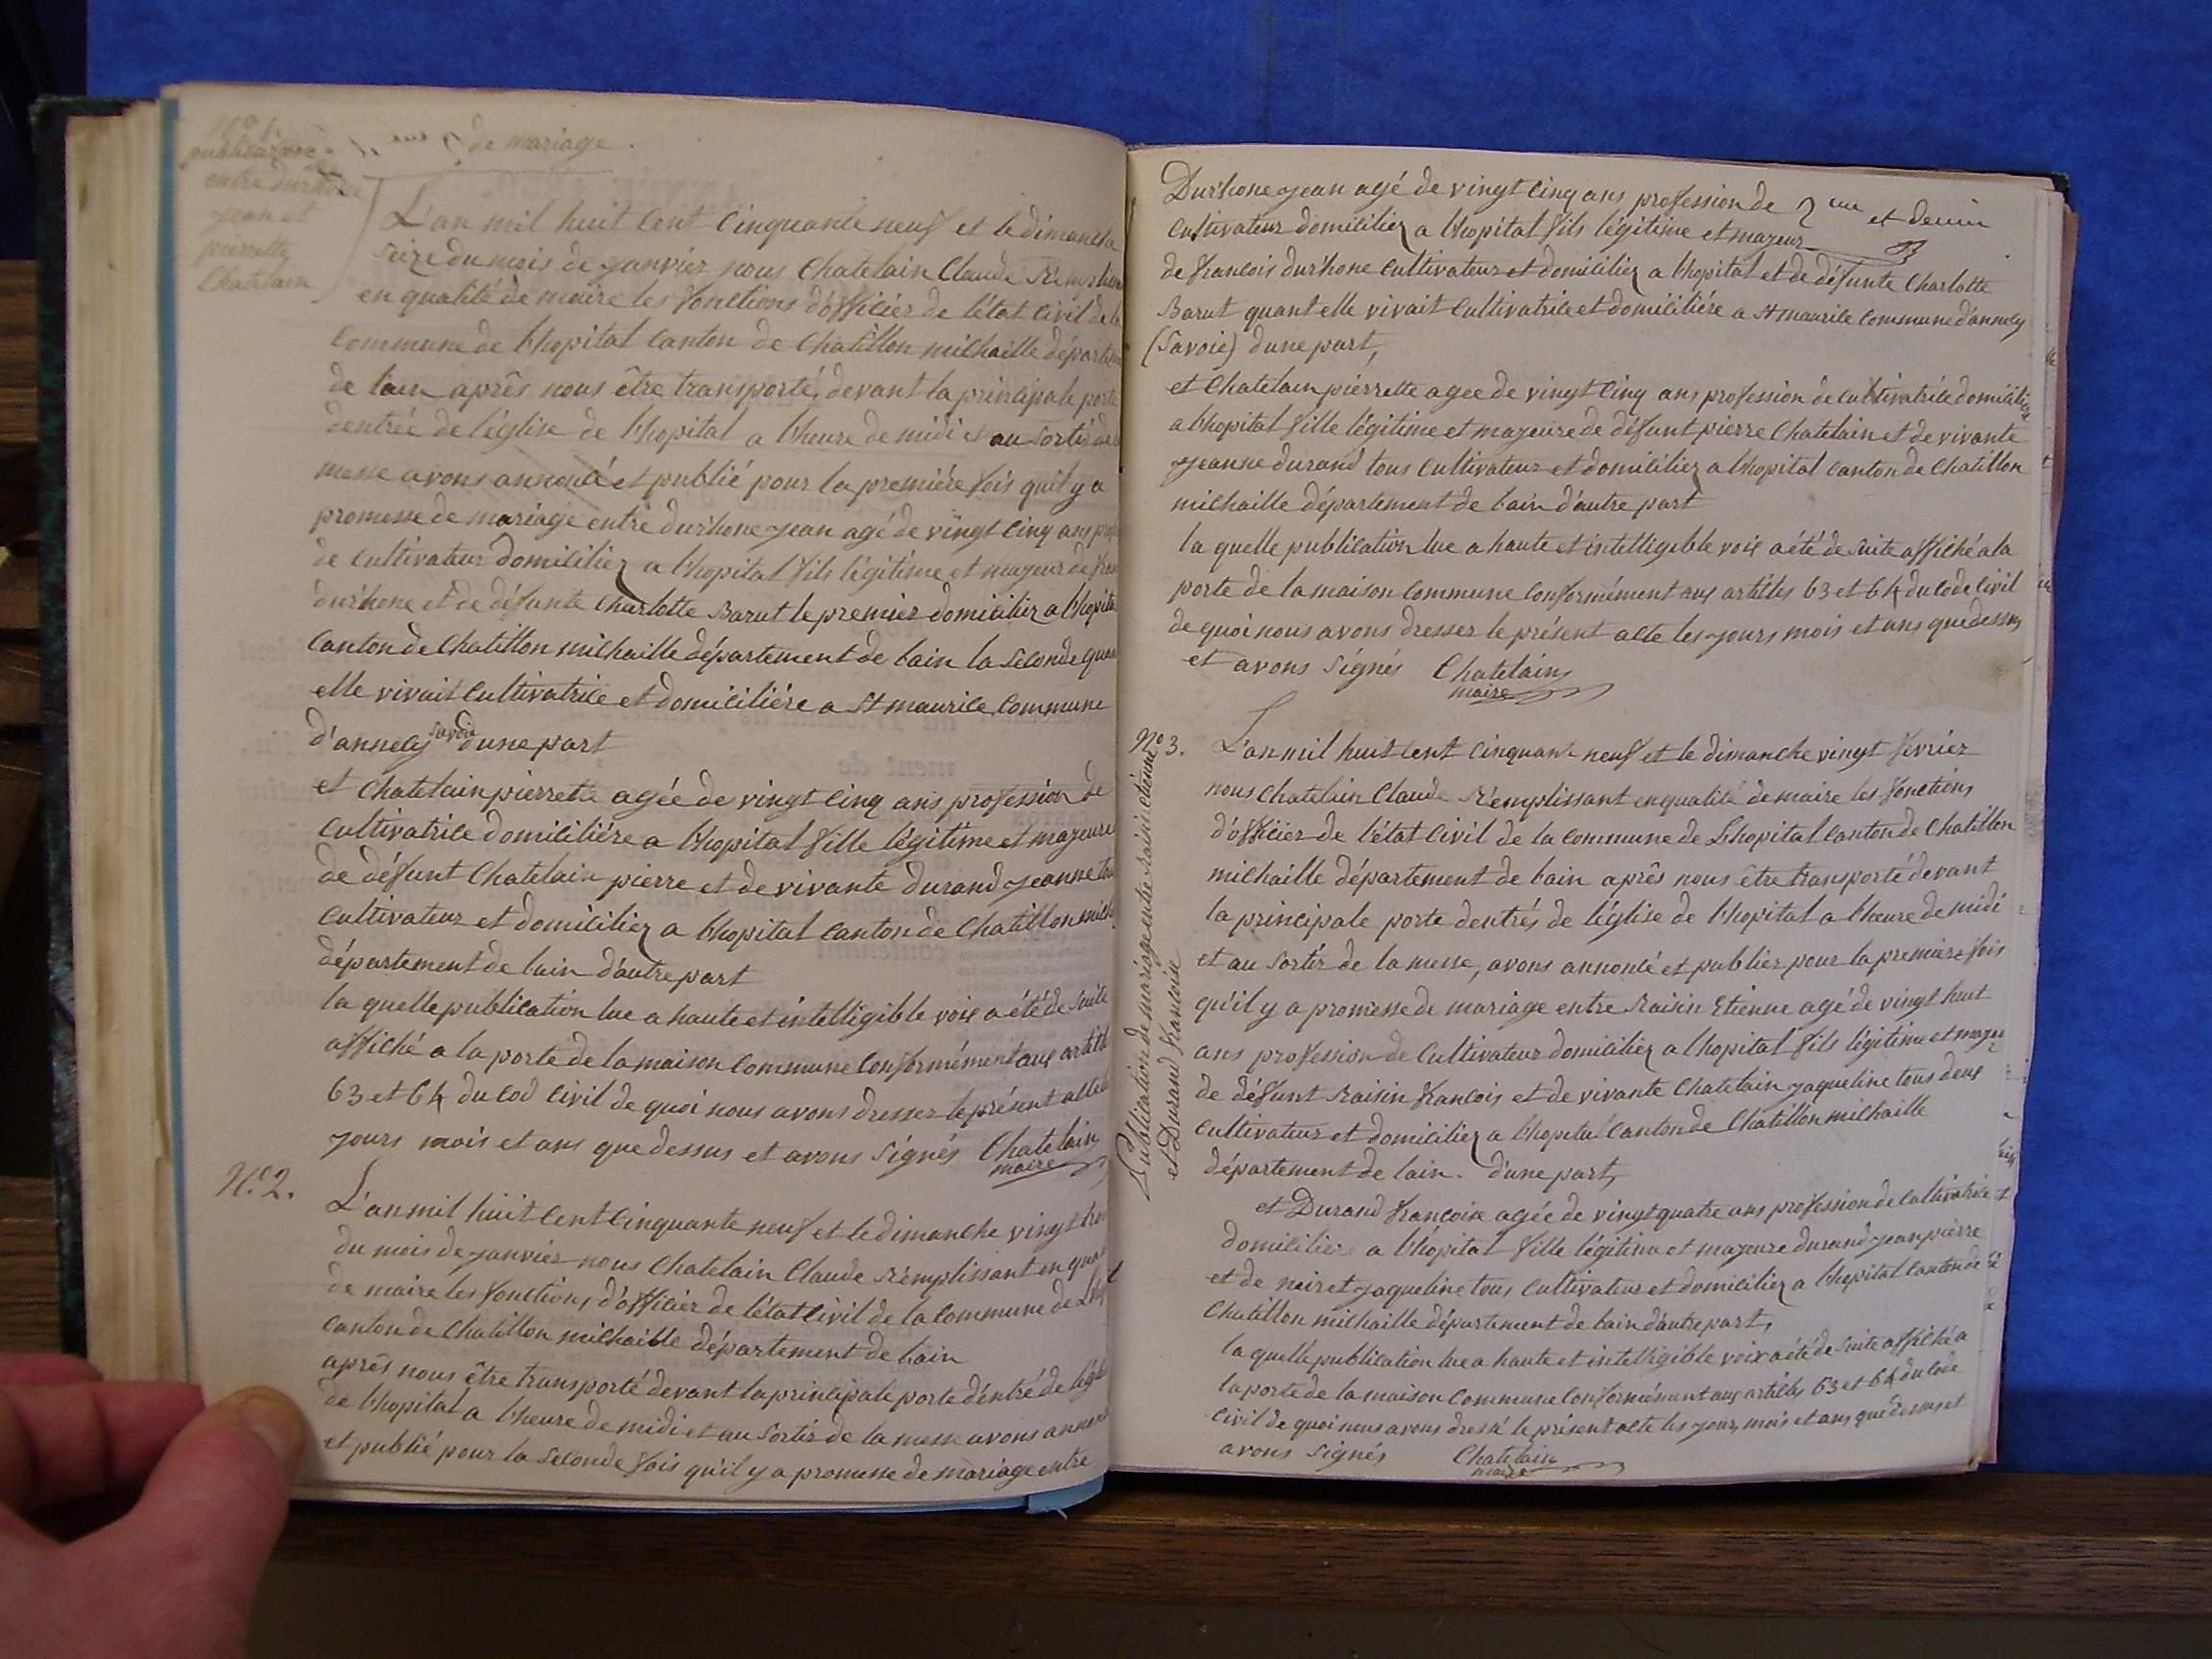 de mariage.
N° 1.
publication
entre durhone
jean et
pierrette
Chatelain
L'an mil huit cent Cinquante neuf et le dimanche
seize du mois de janvier nous Chatelain Claude
en qualité de maire les fonctions d'officier de l'état Civil de la
Commune de l'hopital Canton de Chatillon michaille
de l'ain après nous être transporté, devant la principale porte
dentrée de léglise de l'hopital a l'heure de midi et au sortir de
messe avons annoncé et publié pour la première fois quil y a
promesse de mariage entre durhone jean agé de vingt cinq ans
de cultivateur domicilier a l'hopital fils légitime et mageur de
durhone et de défunte Charlotte Barut le premier domicilier a l'hopital
Canton de Chatillon michaille département de l'ain la seconde
elle vivait Cultivatrice et domicilière a St maurice Commune
d'annecy Savoie d'une part
et Chatelain pierrette agée de vingt cinq ans profession de
Cultivatrice domicilière a l'hopital fille légitime et mageure
de défunt Chatelain pierre et de vivante durand jeanne
Cultivateur et domicilier a l'hopital Canton de Chatillon
département de l'ain d'autre part
la quelle publication lue a haute et intelligible voix a été de suite
affiché a la porte de la maison Commune Conformément aux
63 et 64 du Cod Civil de quoi nous avons dresser le présent acte
jours mois et ans que dessus et avons signés Chatelain
maire
N.° 2.
L'an mil huit cent Cinquante neuf et le dimanche vingt
du mois de janvier nous Chatelain Claude remplissant en
de maire les fonctions d'officier de l'état Civil de la Commune de
Canton de Chatillon michaille département de l'ain
après nous être transporté devant la principale porte d'entré de
de l'hopital a l'heure de midi et au sortir de la messe avons
et publié pour la seconde fois qu'il y a promesse de mariage entre
Durhone jean agé de vingt cinq ans profession de
2me et
Cultivateur domicilier a l'hopital fils légitime et mageur
de francois durhone Cultivateur et domicilier a l'hopital et de défunte Charlotte
Barut quant elle vivait Cultivatrice et domicilière a St maurice Commune d'annecy
(Savoie) d'une part,
et Chatelain pierrette agee de vingt cinq ans profession de Cultivatrice
a l'hopital fille légitime et mageure de défunt pierre Chatelain et de vivante
jeanne durand tous Cultivateur et domicilier a l'hopital Canton de Chatillon
michaille département de l'ain d'autre part
la quelle publication lue a haute et intelligible voix a été de suite affiché a la
porte de la maison Commune Conformément aux articles 63 et 64 du Code Civil
de quoi nous avons dresser le présent acte les jours mois et ans que dessus
et avons signés Chatelain
maire
N° 3.
Publication de mariage entre Raisin Etienne
et Durand francoise
L'an mil huit cent Cinquante neuf et le dimanche vingt fevrier
nous Chatelain Claude remplissant en qualité de maire les fonctions
d'officier de l'état Civil de la commune de Lhopital Canton de Chatillon
michaille département de l'ain après nous être transporté devant
la principale porte dentrés de léglise de l'hopital a l'heure de midi
et au sortir de la messe, avons annoncé et publier pour la premiere fois
qu'il y a promesse de mariage entre Raisin Etienne agé de vingt huit
ans profession de Cultivateur domicilier a lhopital fils légitime et
de défunt Raisin francois et de vivante Chatelain jaqueline tous deux
Cultivateur et domicilier a l'hopital Canton de Chatillon michaille
département de l'ain. d'une part,
et Durand francoise agée de vingt quatre ans profession de Cultivatrice
domicilier a l'hopital fille légitime et mageure durand jean pierre
et de jaqueline tous Cultivateur et domicilier a l'hopital Canton de
Chatillon michaille département de l'ain d'autre part,
la quelle publication lue a haute et intelligible voix a été de suite affiché a
la porte de la maison Commune Conformément aux articles 63 et 64 du Code
Civil de quoi nous avons dressé le présent acte les jours, mois et ans que dessus et
avons signés Chatelain
maire